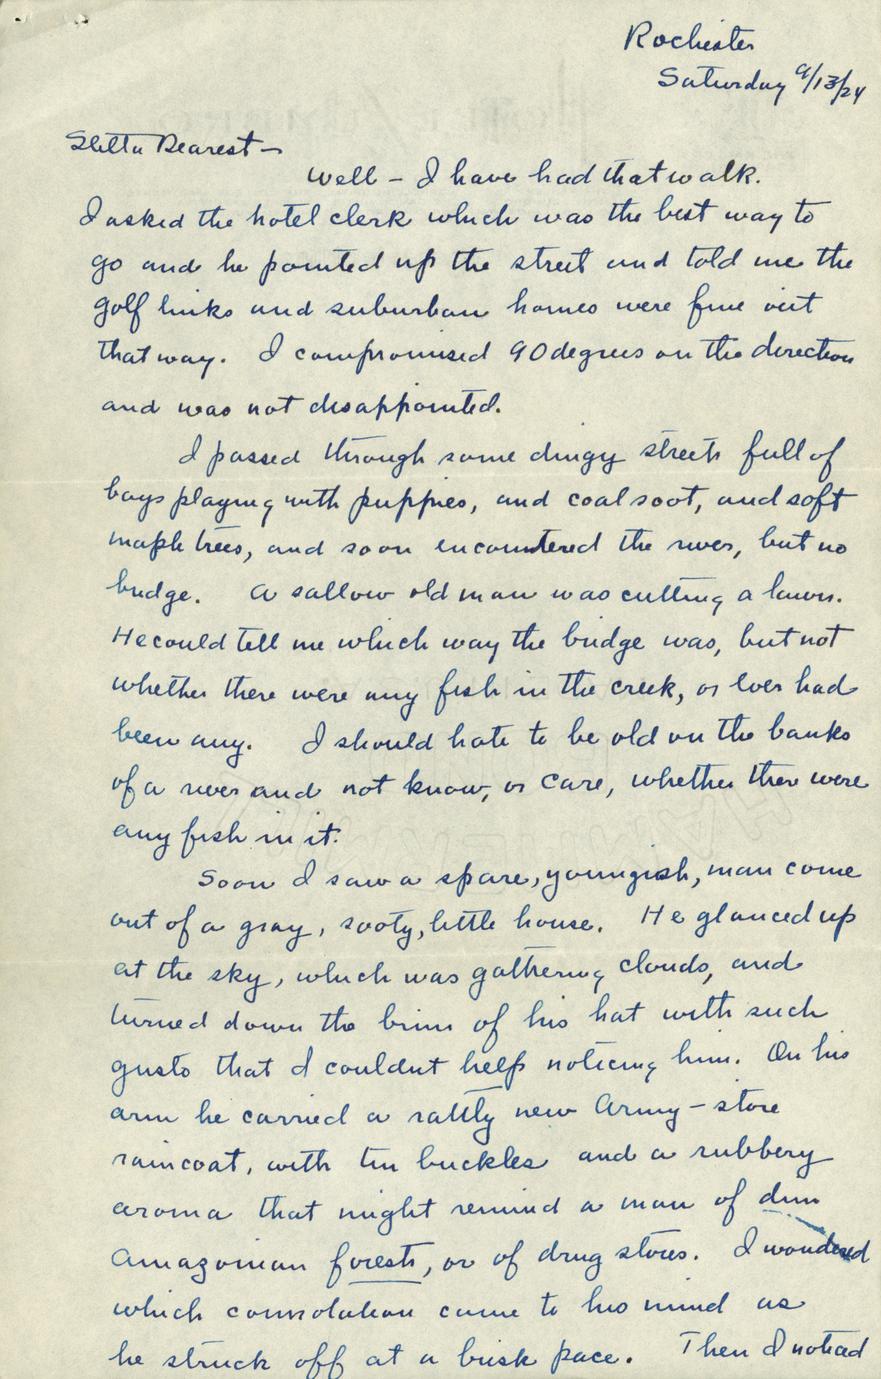 Rochester
Saturday 9/13/24
Estella Dearest —
Well – I have had that walk.
I asked the hotel clerk which was the best way to
go and he pointed up the street and told me the
golf links and suburban homes were fine out
that way. I compromised 90 degrees on the direction
and was not disappointed.
I passed through some dingy streets full of
boys playing with puppies, and coal soot, and soft
maple trees, and soon encountered the river, but no
bridge. A sallow old man was cutting a lawn.
He could tell me which way the bridge was, but not
whether there were any fish in the creek, or ever had
been any. I should hate to be old on the banks
of a river and not know, or care, whether there were
any fish in it.
Soon I saw a spare, youngish, man come
out of a gray, sooty, little house. He glanced up
at the sky, which was gathering clouds, and
turned down the brim of his hat with such
gusto that I couldnt help noticing him. On his
arm he carried a rattly new Army – store
raincoat, with tin buckles and a rubbery
aroma that might remind a man of dim
Amazonian forests, or of drug stores. I wondered
which connotation came to his mind as
he struck off at a brisk pace. Then I noticed